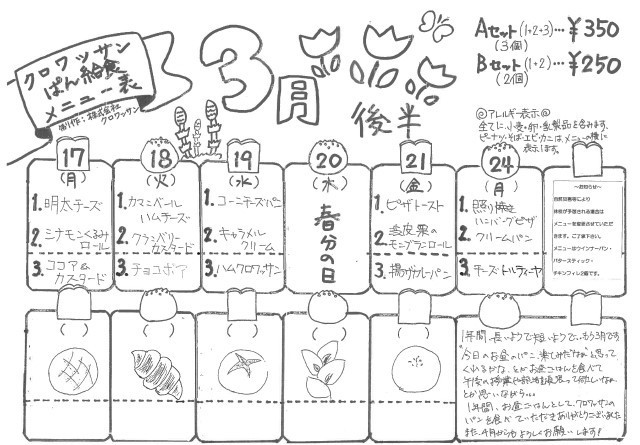 クロワッサン
ぱん給食
メニュー表
制作：株式会社
クロワッサン
3月
後半
Aセット(1+2+3)…¥350
(3個)
Bセット(1+2)…¥250
(2個)
◎アレルギー表示◎
全てに、小麦・卵・乳製品を含みます。
ピーナッツ・そば・エビ・カニは、メニューの横に
表示します。
17
(月)
1.明太チーズ
2.シナモンくるみ
ロール
3.ココア&
カスタード
18
(火)
1.カマンベール
ハムチーズ
2.クランベリー
カスタード
3.チョコボア
19
(水)
1.コーンチーズパン
2.キャラメル
クリーム
3.ハムクロワッサン
20
(木)
春分の日
21
(金)
1.ピザトースト
2.渋皮栗の
モンブランロール
3.揚カレーパン
24
(月)
1.照り焼き
ハンバーグピザ
2.クリームパン
3.チーズトルティーヤ
～お知らせ～
自然災害等により
休校が予想される場合は
メニューを変更させていただ
きます。ご了承下さい。
メニューはウインナーパン・
バタースティック・
チキンフィレ2種です。
( )
( )
( )
( )
( )
1年間、長いようで短いようで…もう3月です
"今日のお昼のパン、楽しみだな"と思って
くれるかな、とか お昼ごはんを食べて
午後の
とか思いながら…
1年間、お昼ごはんとして、クロワッサンの
パンを食べていただきありがとうございました
また、4月からもよろしくお願いします!